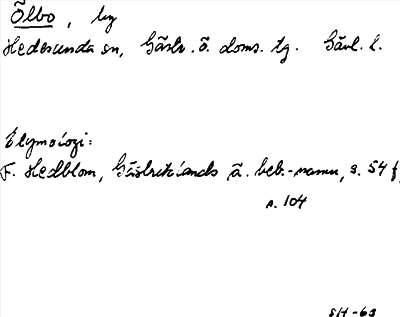 Ölbo, by
Hedesunda sn, Gästr. ö. doms. tg. Gävl. l.
Etymologi:
F. Hedblom, Gästriklands ä. beb.-namn, s. 54 f,
s. 104
SH-63